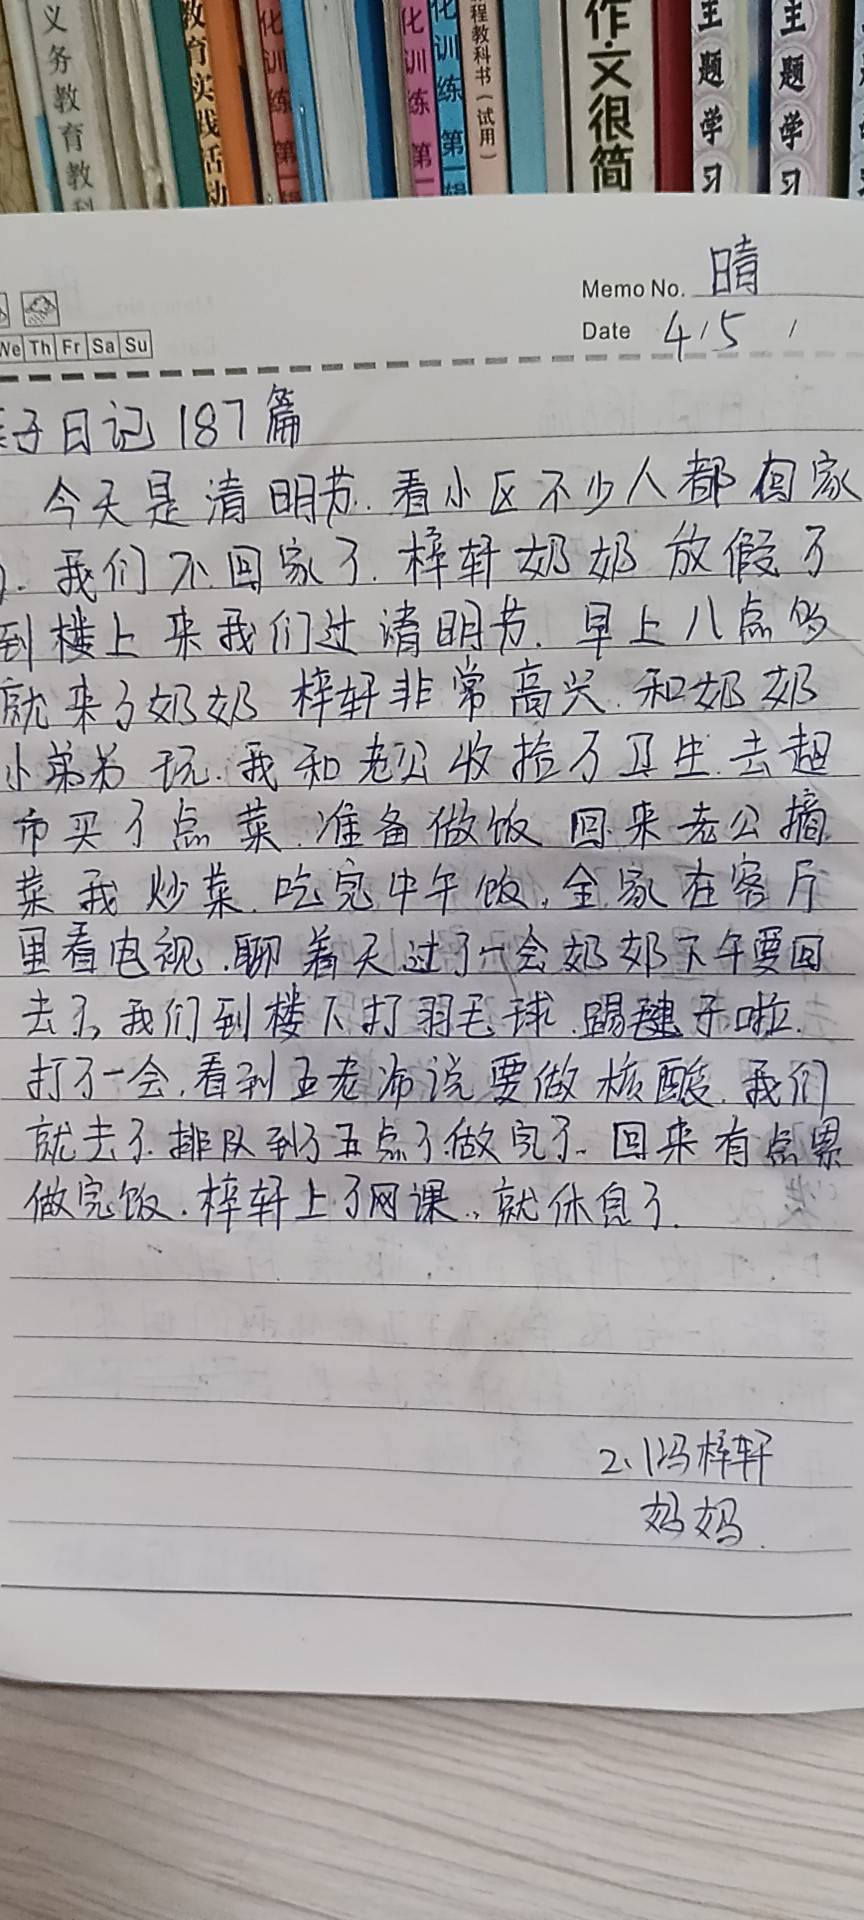 义务教育教科
教育实践活动
化训练 第一辑
化训练 第一
化训练 第一辑
程教科书(试用)
作文很简
主题学习
主题学习
Memo No. 晴
We Th Fr Sa Su
Date 4/5 /
子日记187篇
今天是清明节.看小区不少人都回家
.我们不回家了.梓轩奶奶放假了
到楼上来我们过清明节.早上八点多
就来了奶奶 梓轩非常高兴.和奶奶
小弟弟玩.我和老公收捡了卫生.去超
市买了点菜.准备做饭 回来老公摘
菜我炒菜.吃完中午饭,全家在客厅
里看电视.聊着天过了一会奶奶下午要回
去了,我们到楼下打羽毛球.踢毽子啦.
打了一会,看到王老师说要做核酸.我们
就去了.排队到了五点了.做完了.回来有点累
做完饭.梓轩上了网课..就休息了.
2.1冯梓轩
妈妈.